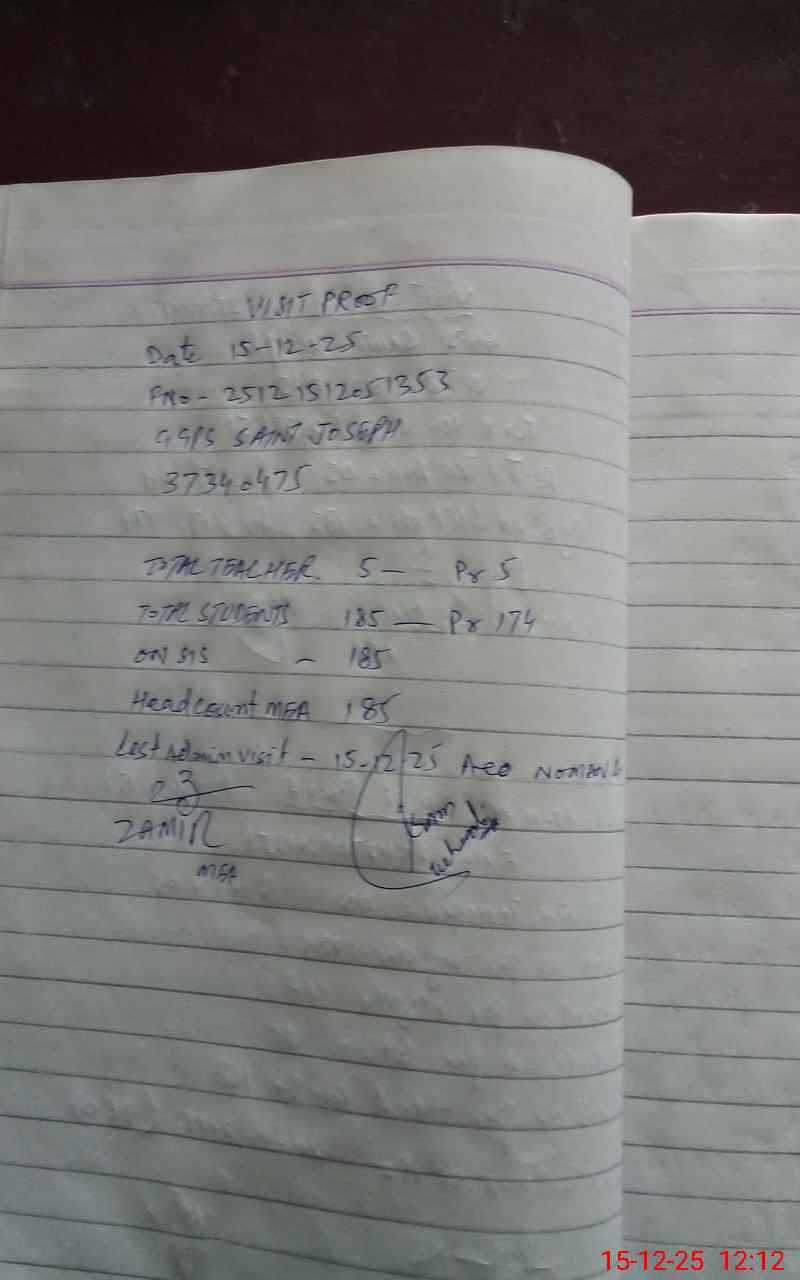 VISIT PROOF
Date 15-12-25
FNo- 25121512051353
GGPS SAINT JOSEPH
37340475
TOTAL TEACHER. 5 — Pr 5
TOTAL STUDENTS 185 — Pr 174
ON SIS - 185
Headcount MEA 185
Last Admin visit - 15-12-25 AEO NOMAN
ZAMIR
MEA
15-12-25 12:12